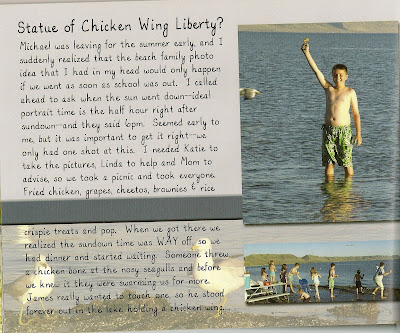 Statue of Chicken Wing Liberty?
Michael was leaving for the summer early, and I
suddenly realized that the beach family photo
idea that I had in my head would only happen
if we went as soon as school was out. I called
ahead to ask when the sun went down--ideal
portrait time is the half hour right after
sundown--and they said 6pm. Seemed early to
me, but it was important to get it right--we
only had one shot at this. I needed Katie to
take the pictures, Linda to help and Mom to
advise, so we took a picnic and took everyone.
Fried chicken, grapes, cheetos, brownies & rice
crispie treats and pop. When we got there we
realized the sundown time was WAY off, so we
had dinner and started waiting. Someone threw
a chicken bone at the nosy seagulls and before
we knew it they were swarming us for more.
James really wanted to touch one, so he stood
forever out in the lake holding a chicken wing...